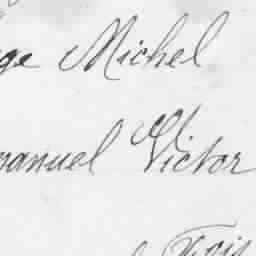 ge Michel
manuel Victor